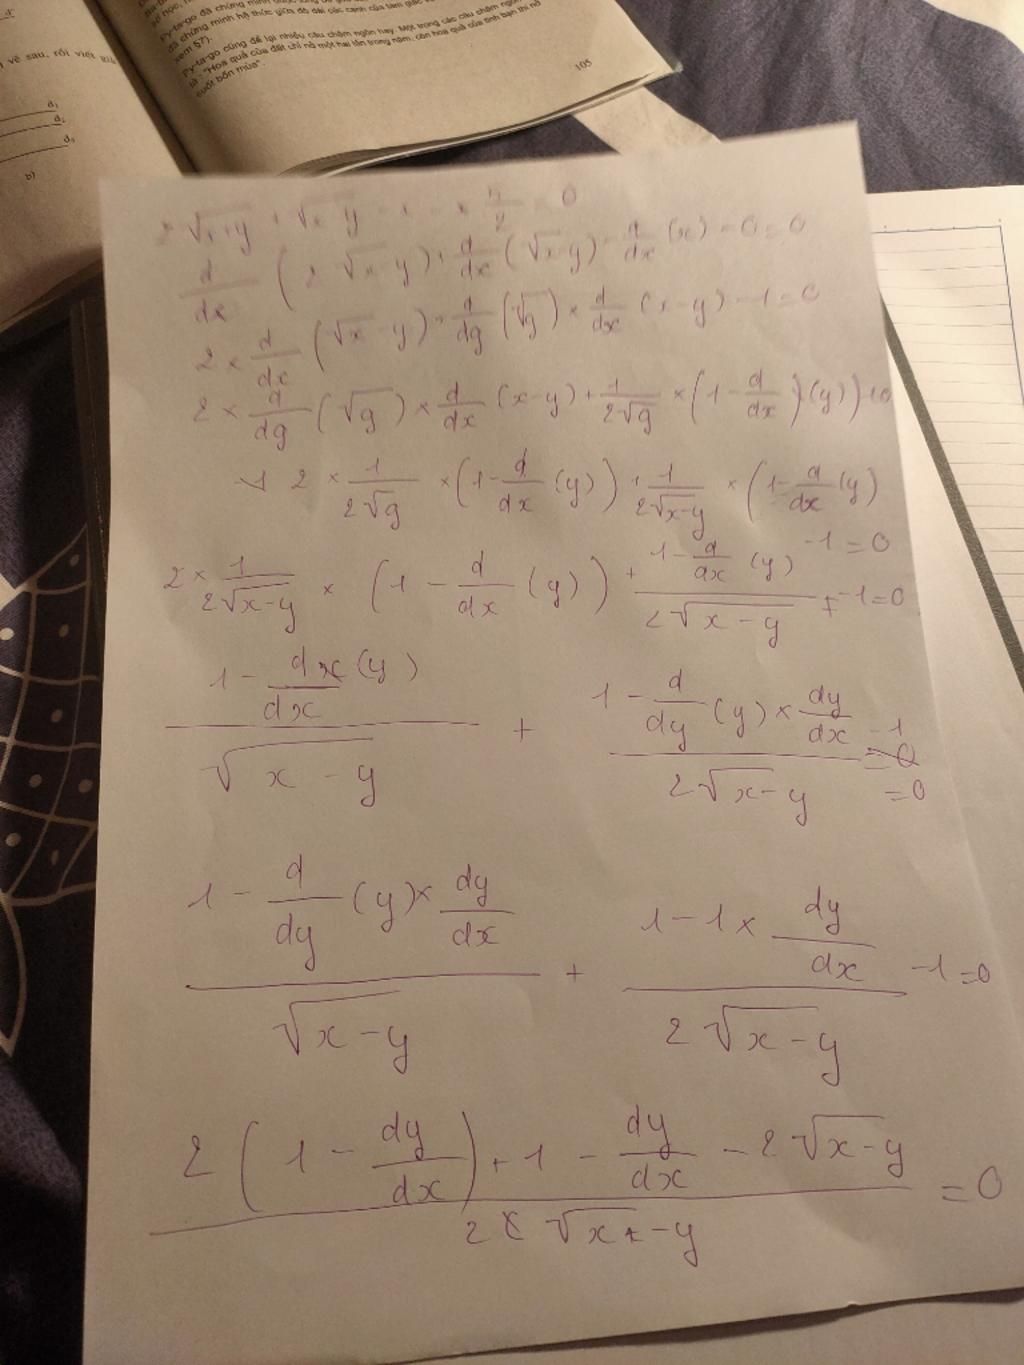 vẽ sau, rồi viết
d₁
d₂
d₃
b)
Py-ta-go đã chứng minh được
đã chứng minh hệ thức giữa độ dài các cạnh của tam giác
xem 57).
Py-ta-go cũng để lại nhiều câu châm ngôn hay. Một trong các câu châm ngôn
là : "Hoa quả của đất chỉ nở một hai lần trong năm, còn hoa quả của tình bạn thì nở
suốt bốn mùa".
105
√x+y + √x-y - x - 5/2 = 0
d/dx (2√x-y) + d/dx (√x-y) - d/dx (x) - 0 = 0
2 × d/dx (√x-y) + d/dg (√g) × d/dx (x-y) - 1 = 0
2 × d/dg (√g) × d/dx (x-y) + 1/2√g × (1 - d/dx (y))
2 × 1/2√g × (1 - d/dx (y)) + 1/2√x-y × (1 - d/dx (y)
-1 = 0
2 × 1/2√x-y × (1 - d/dx (y)) + 1 - d/dx (y) / 2√x-y + -1 = 0
1 - dx/dx (y) / √x-y + 1 - d/dy (y) × dy/dx / 2√x-y -1 = 0
= 0
1 - d/dy (y) × dy/dx / √x-y + 1 - 1 × dy/dx / 2√x-y -1 = 0
2 (1 - dy/dx) + 1 - dy/dx - 2√x-y / 2 × √x-y = 0